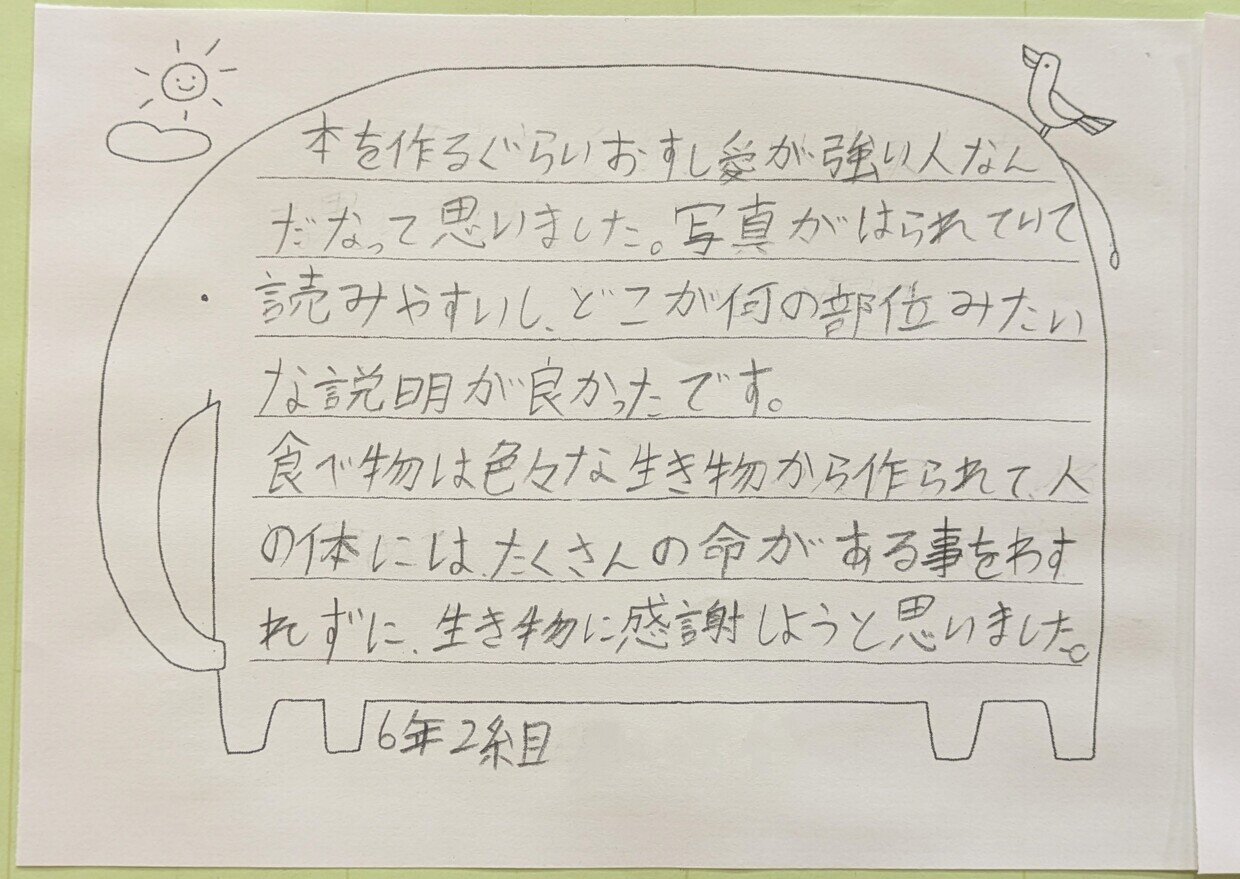 本を作るぐらいおすし愛が強い人なん
だなって思いました。写真がはられていて
読みやすいし、どこが何の部位みたい
な説明が良かったです。
食べ物は色々な生き物から作られて、人
の体には、たくさんの命がある事をわす
れずに、生き物に感謝しようと思いました。
6年2組